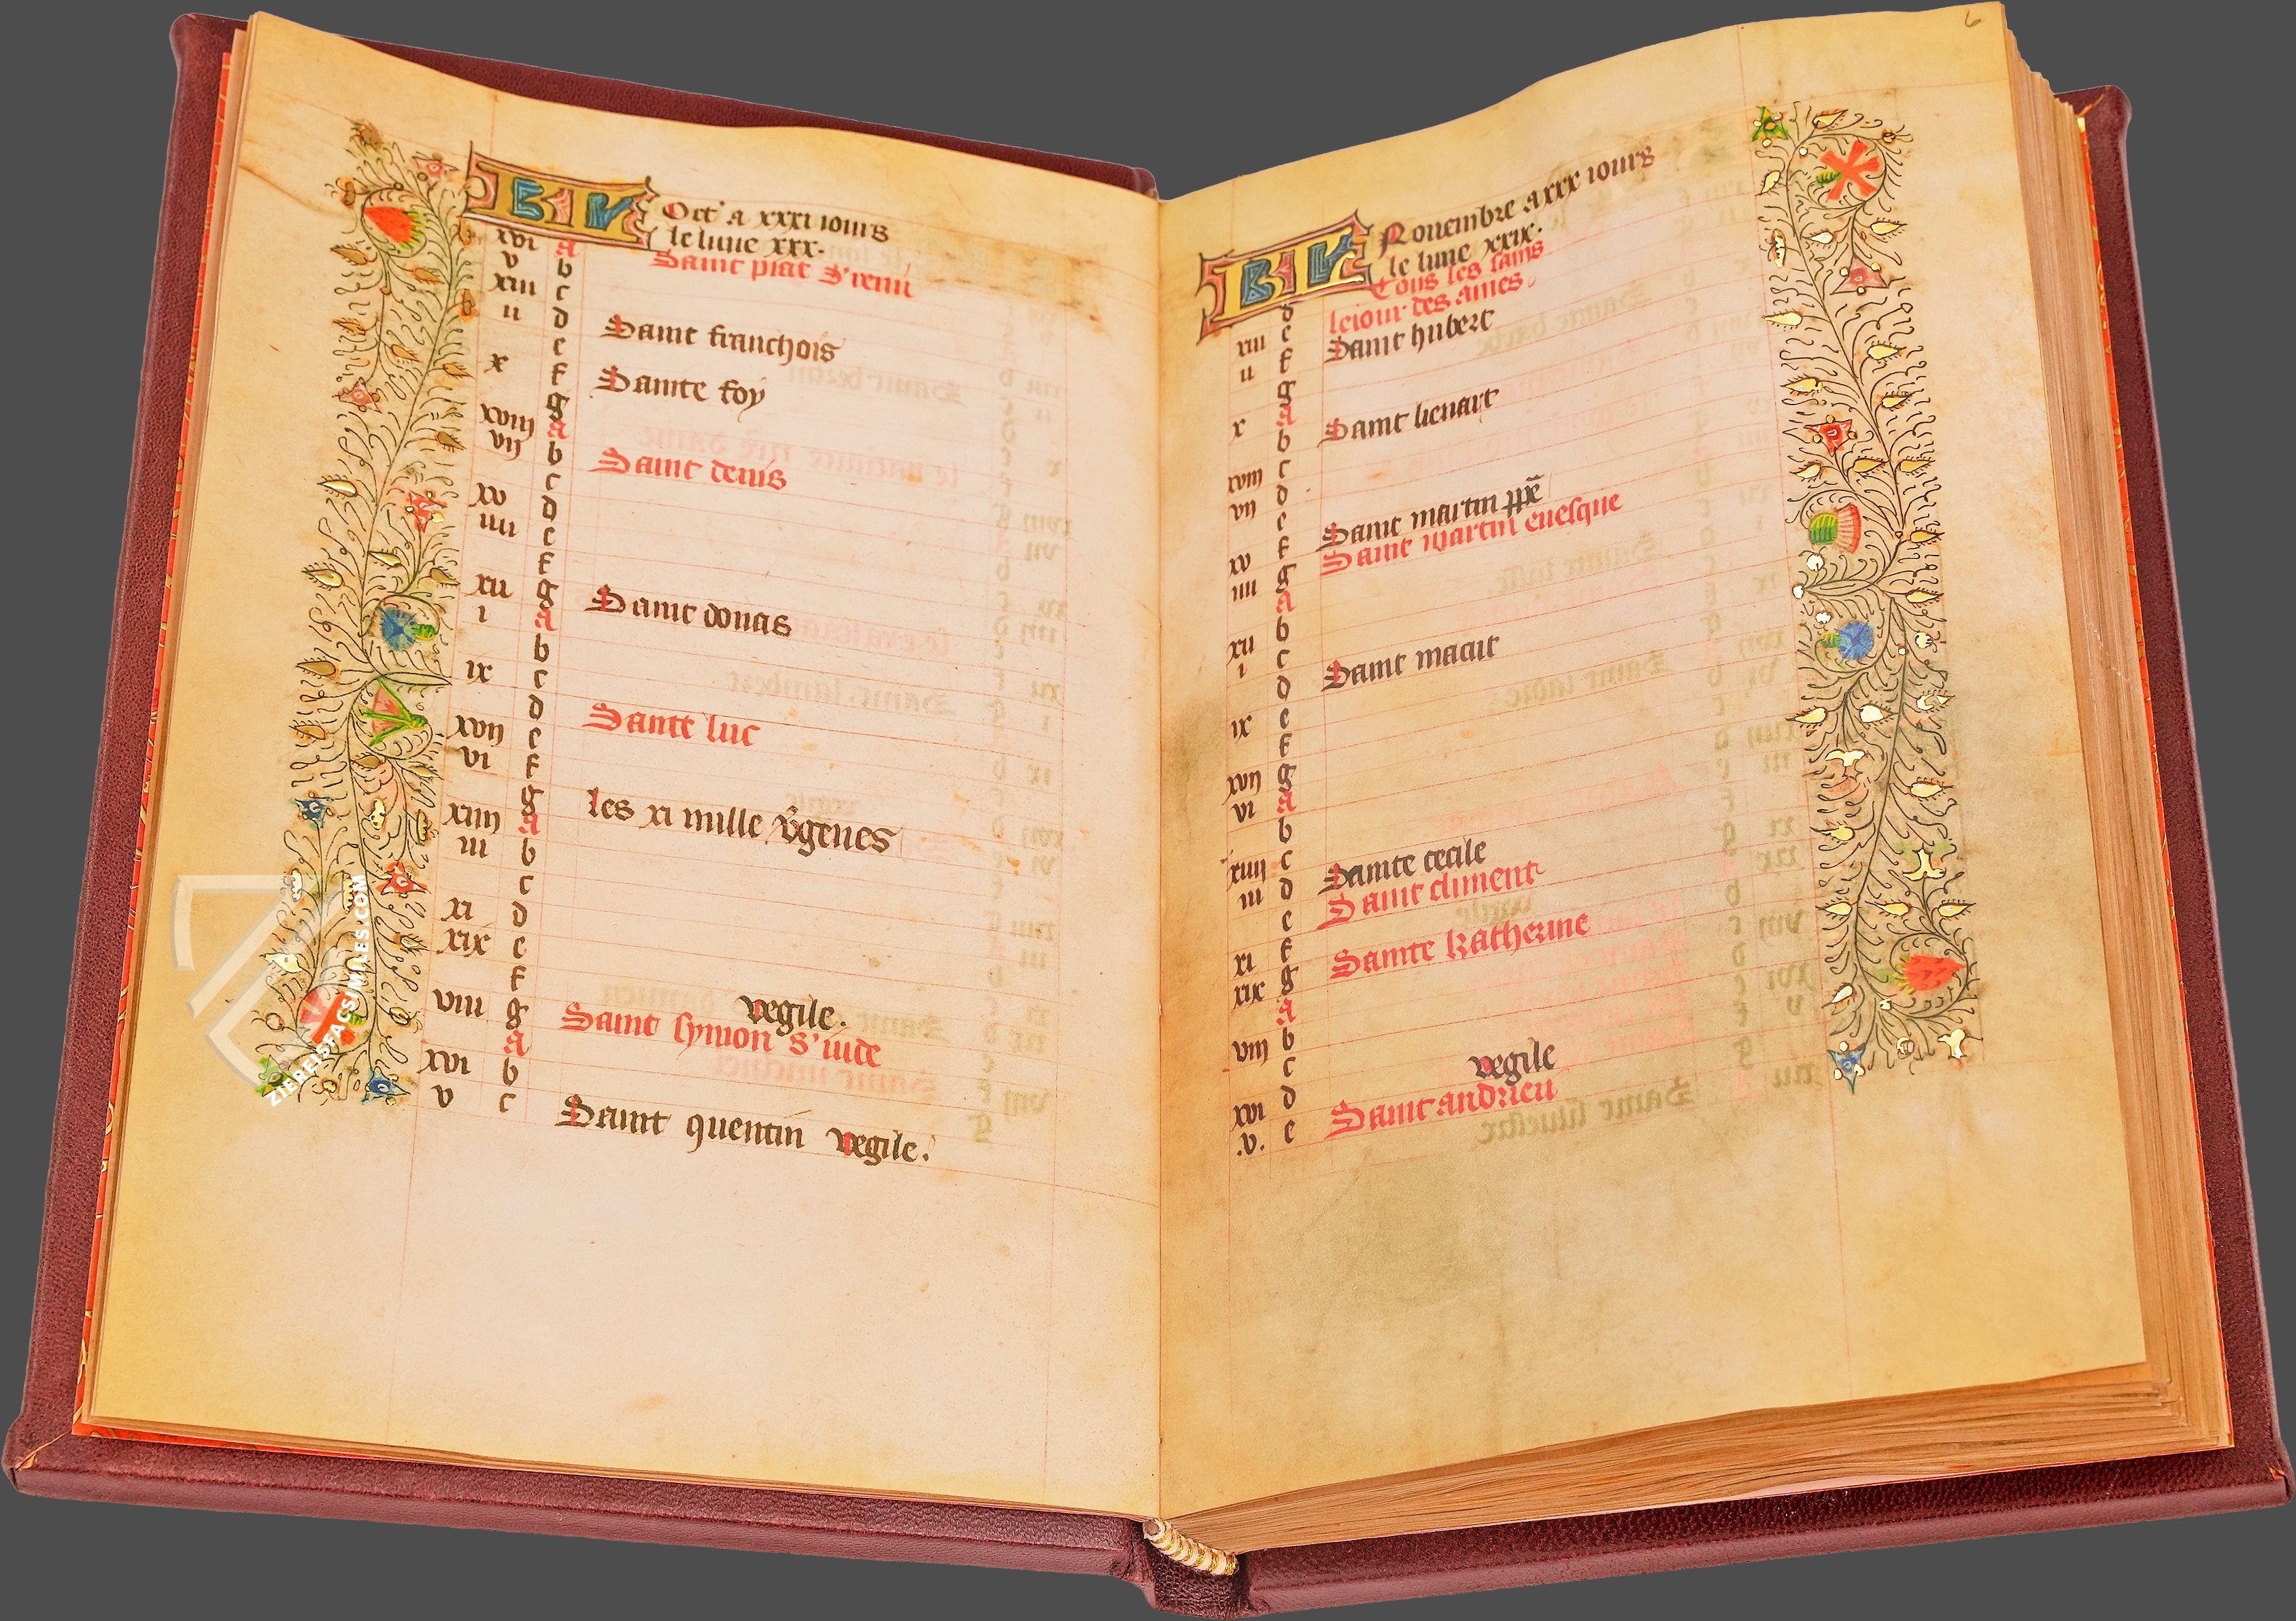 KL Oct' a xxxi iours
le lune xxx.
xvi a Saint piat S' remi
v b
xiii c
ii d Saint franchois
e
x f Sainte foy
g
xviii a
vii b Saint denis
c
xv d
iiii e
f
xii g Saint donas
i a
b
ix c
d Saint luc
xvii e
vi f
g les xi mille v̄genes
xiiii a
iii b
c
xi d
xix e
f vegile.
viii g Saint symon S' iude
a
xvi b
v c Saint quentin vegile.
6
KL Nouembre a xxx iours
le lune xxix.
Tous les sains
d le iour des ames
xiii e Saint hubert
ii f
g
x a Saint lienart
b
c
xviii d
vii e Saint martin pp̄e
xv f Saint martin euesque
iiii g
a
xii b
i c Saint maclit
d
ix e
f
xvii g
vi a
b
xiiii c Sainte cecile
iii d Saint climent
e
xi f Sainte katherine
xix g
a
viii b
c vegile
xvi d Saint andrieu
.v. e
ZIEREISFACSIMILES.COM